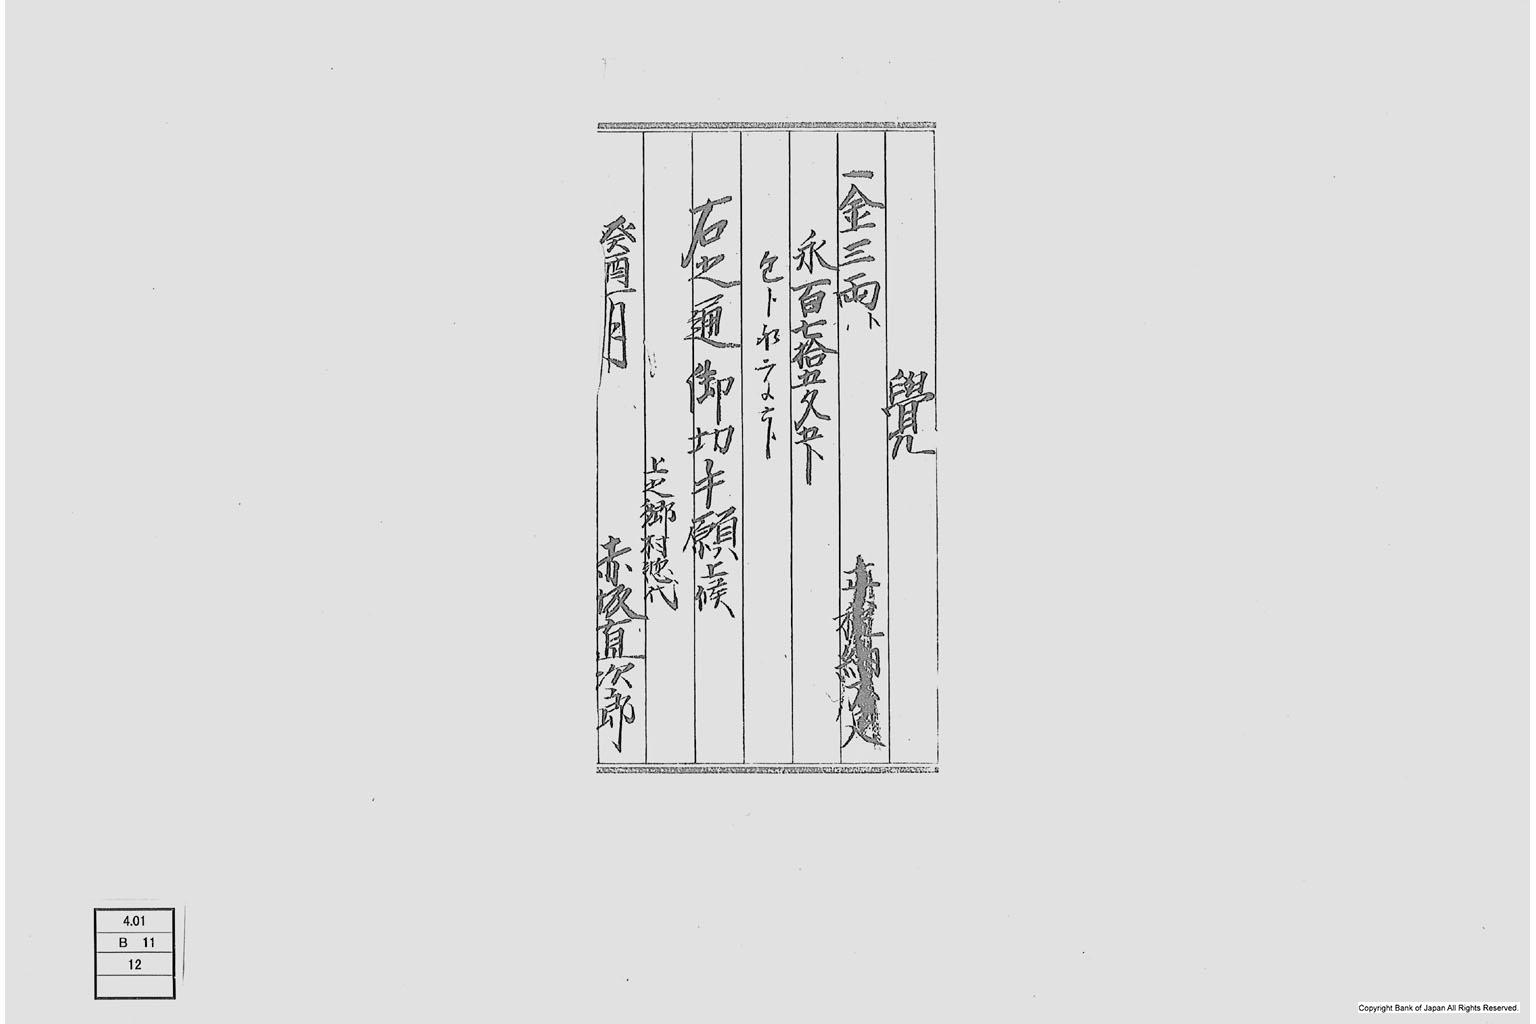 覺
一金三両ト
永百七拾五文五ト
右之通御切手願上候
上之郷村惣代
癸酉一月
赤坂直次郎
4.01
B 11
12
Copyright Bank of Japan All Rights Reserved.